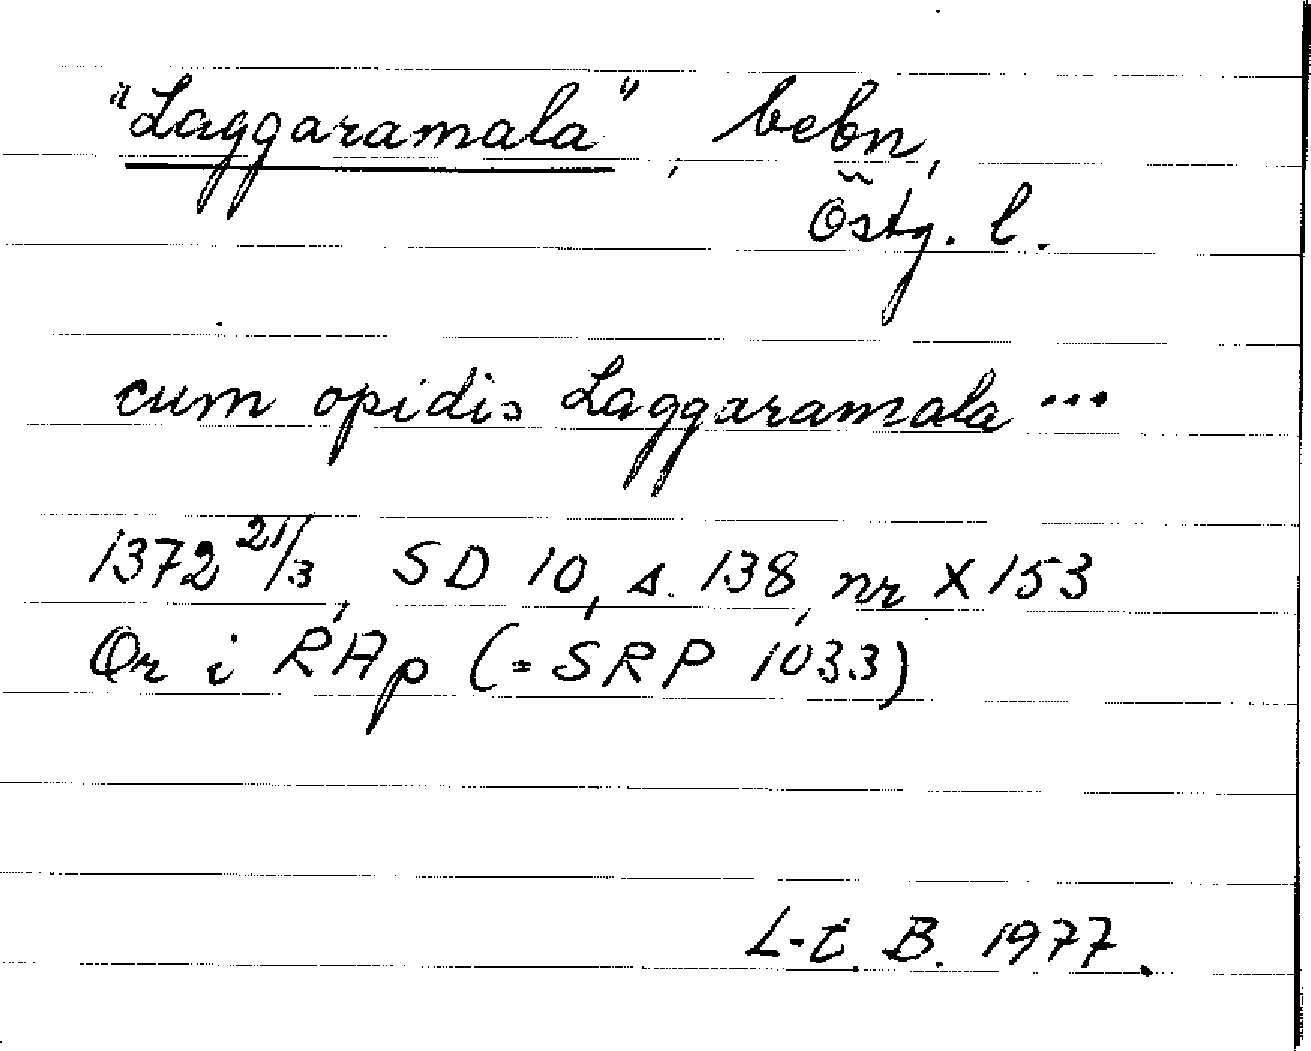 "Laggaramala", bebn,
Östg. l.
cum opidis Laggaramala ...
1372 21/3, SD 10, s. 138, nr X 153
Or i RAp (= SRP 1033)
L-E. B. 1977.